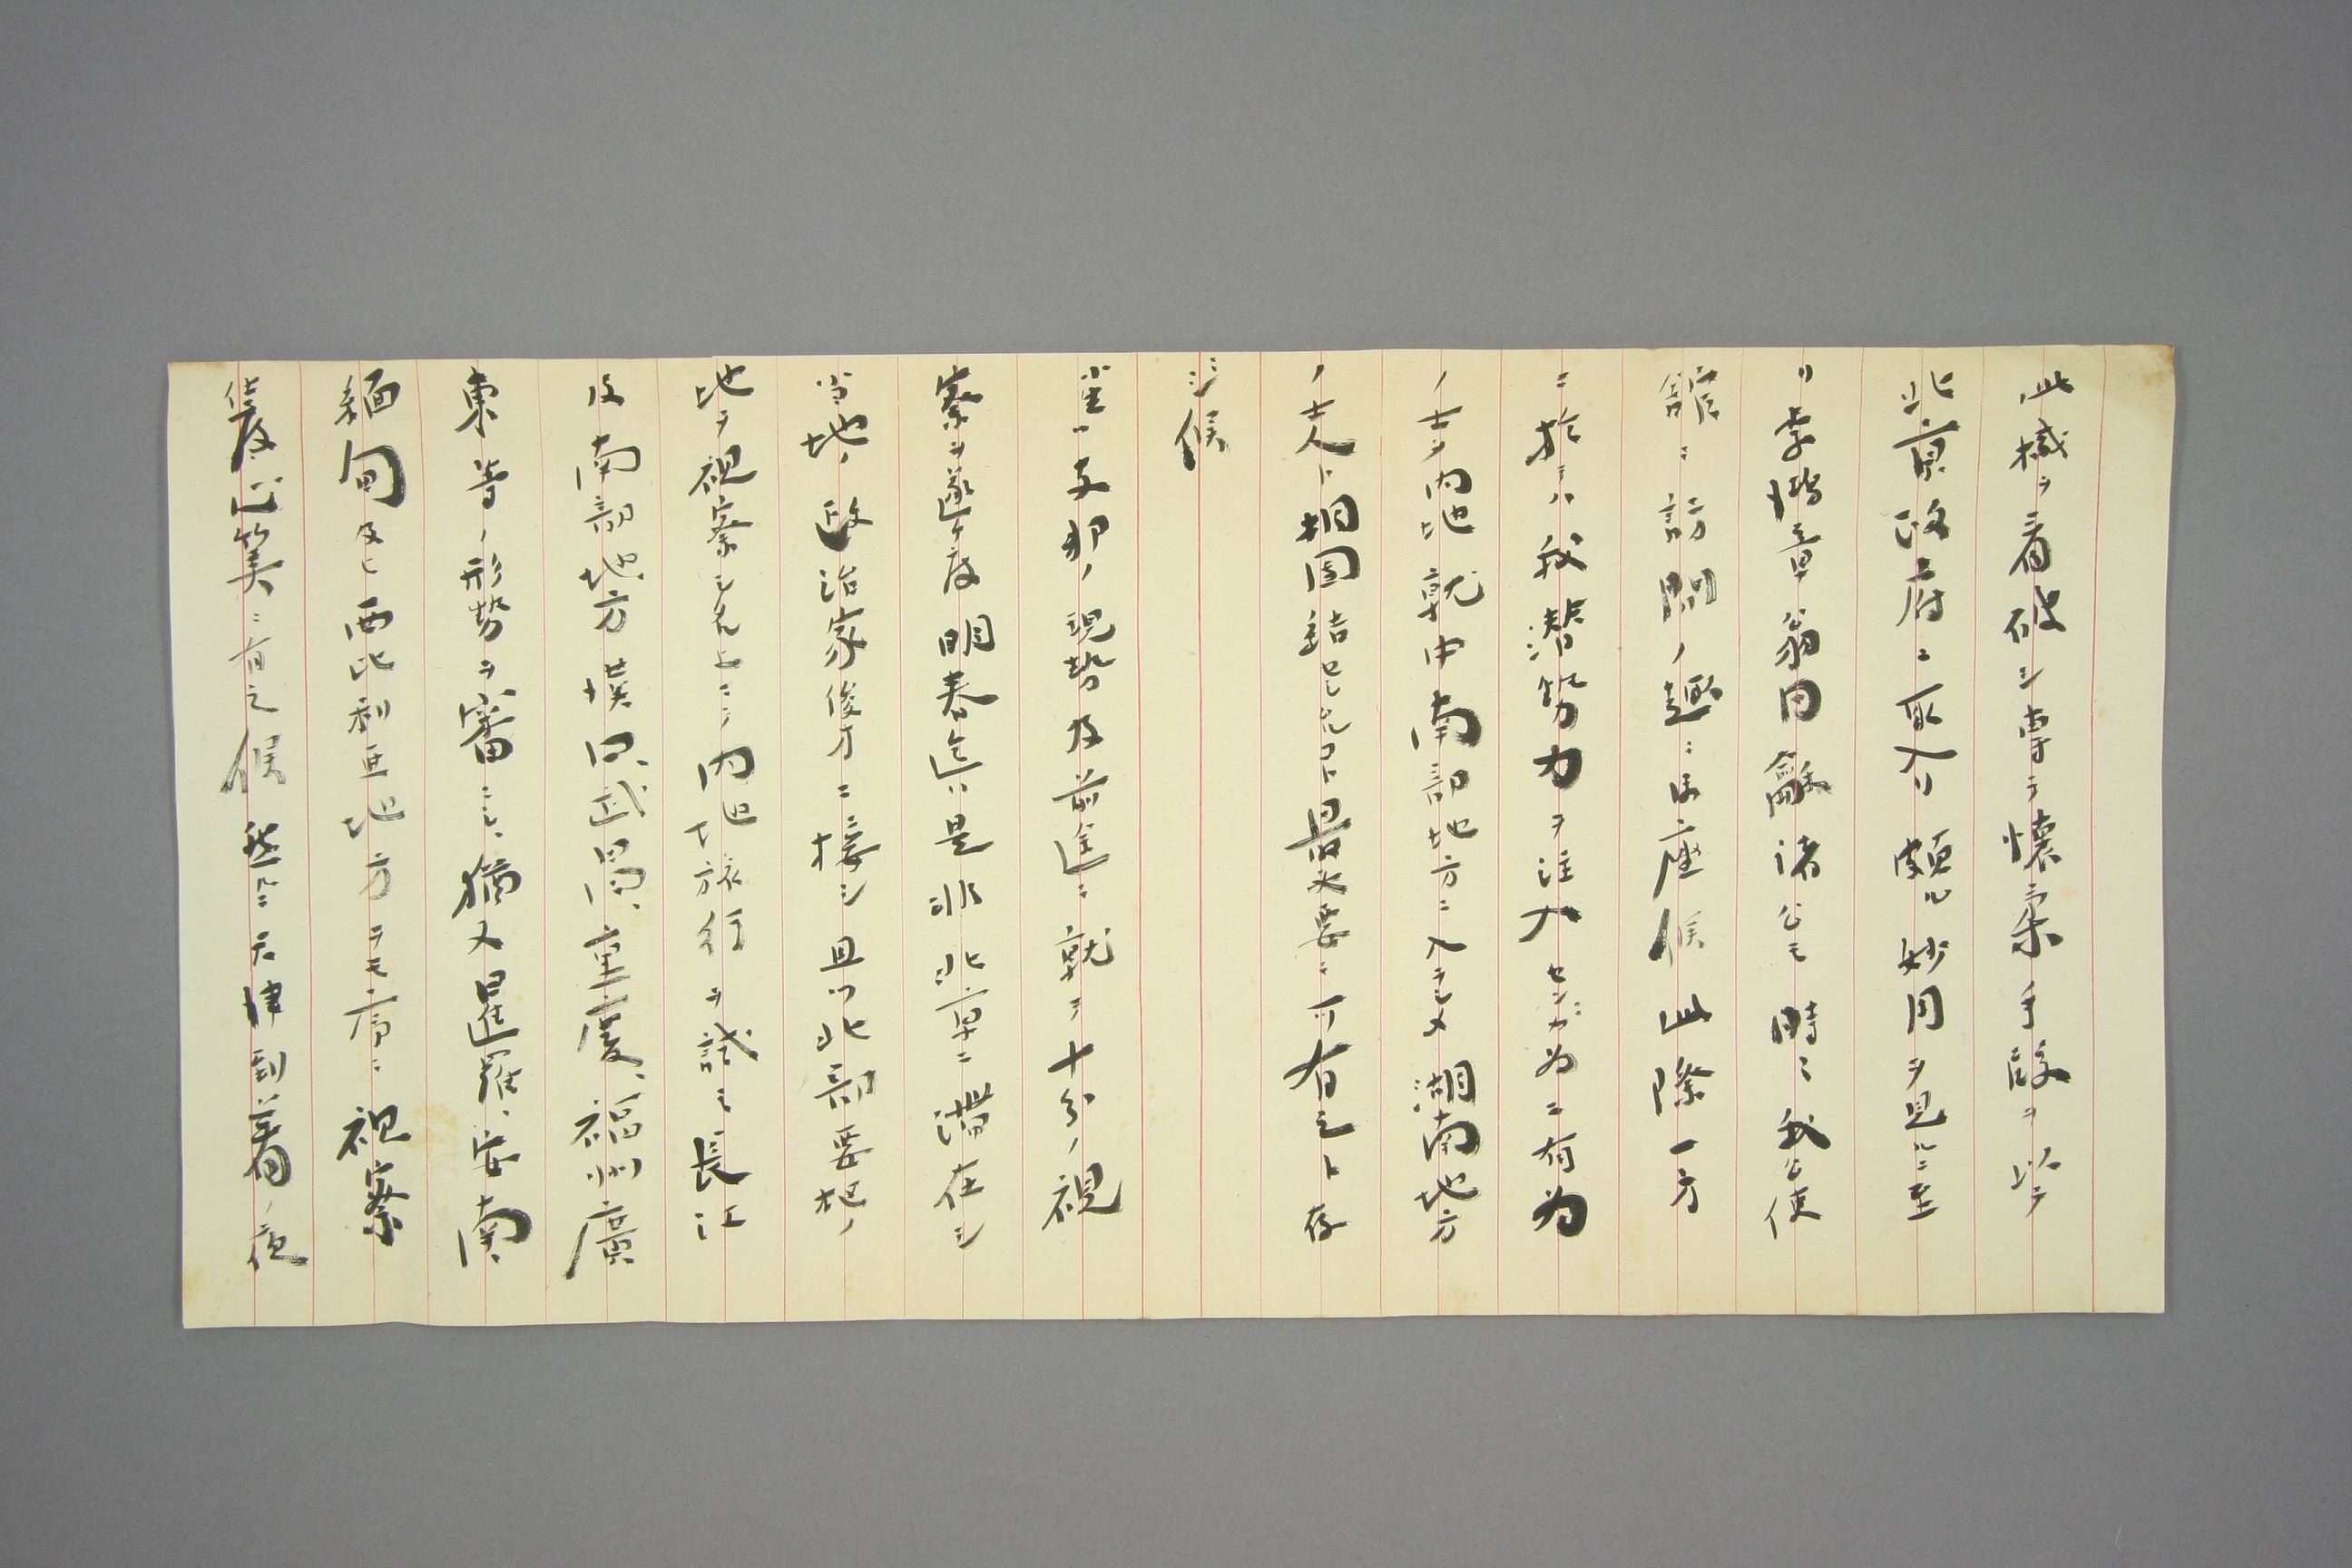 此機ヲ看破シ専ラ懐柔手段ヲ以テ
北京政府ニ取入リ頗ル妙用ヲ見ルニ至
リ李鴻章翁同龢諸公モ時ニ我公使
館ニ訪問ノ趣ニ御座候此際一方
ニ於テハ我潜勢力ヲ注入センガ為ニ有為
ノ士ヲ内地就中南部地方ニ入ラシメ湖南地方
ノ士人ト相団結セシムルコト最大要ニ可有之ト存
ジ候
小生ハ支那ノ現勢及前途ニ就テ十分ノ視
察ヲ遂ケ度明春迄ハ是非北京ニ滞在シ
当地ノ政治家俊才ニ接シ且ツ北部要枢ノ
地ヲ視察シ
内地旅行ヲ試ミ長江
及南部地方漢口、武昌、重慶、福州、廣
東等ノ形勢ヲ審ニシ、猶又暹羅、安南
緬甸及ヒ西比利亜地方ヲモ序ニ視察
致度心算ニ有之候 然ルニ天津到着ノ夜